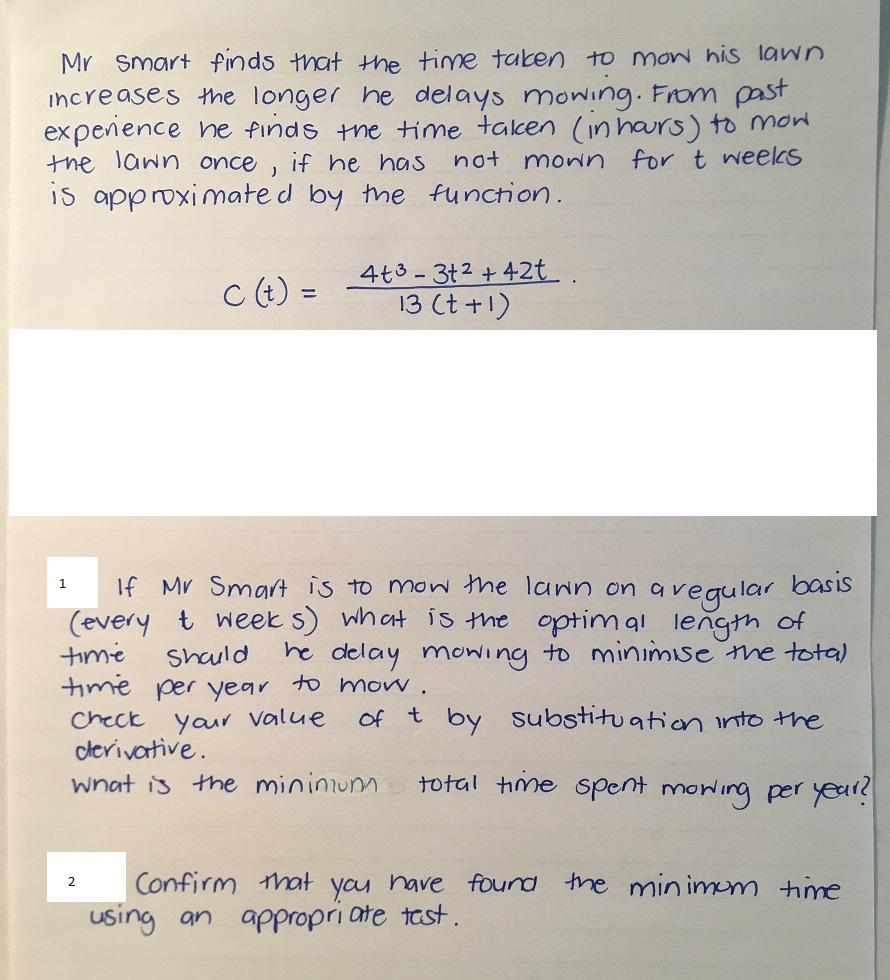 Mr Smart finds that the time taken to mow his lawn
increases the longer he delays mowing. From past
experience he finds the time taken (in hours) to mow
the lawn once, if he has not mown for t weeks
is approximated by the function.
C(t) = (4t³ - 3t² + 42t) / (13(t+1)).
1 If Mr Smart is to mow the lawn on a regular basis
(every t weeks) what is the optimal length of
time should he delay mowing to minimise the total
time per year to mow.
Check your value of t by substitution into the
derivative.
What is the minimum total time spent mowing per year?
2 Confirm that you have found the minimum time
using an appropriate test.